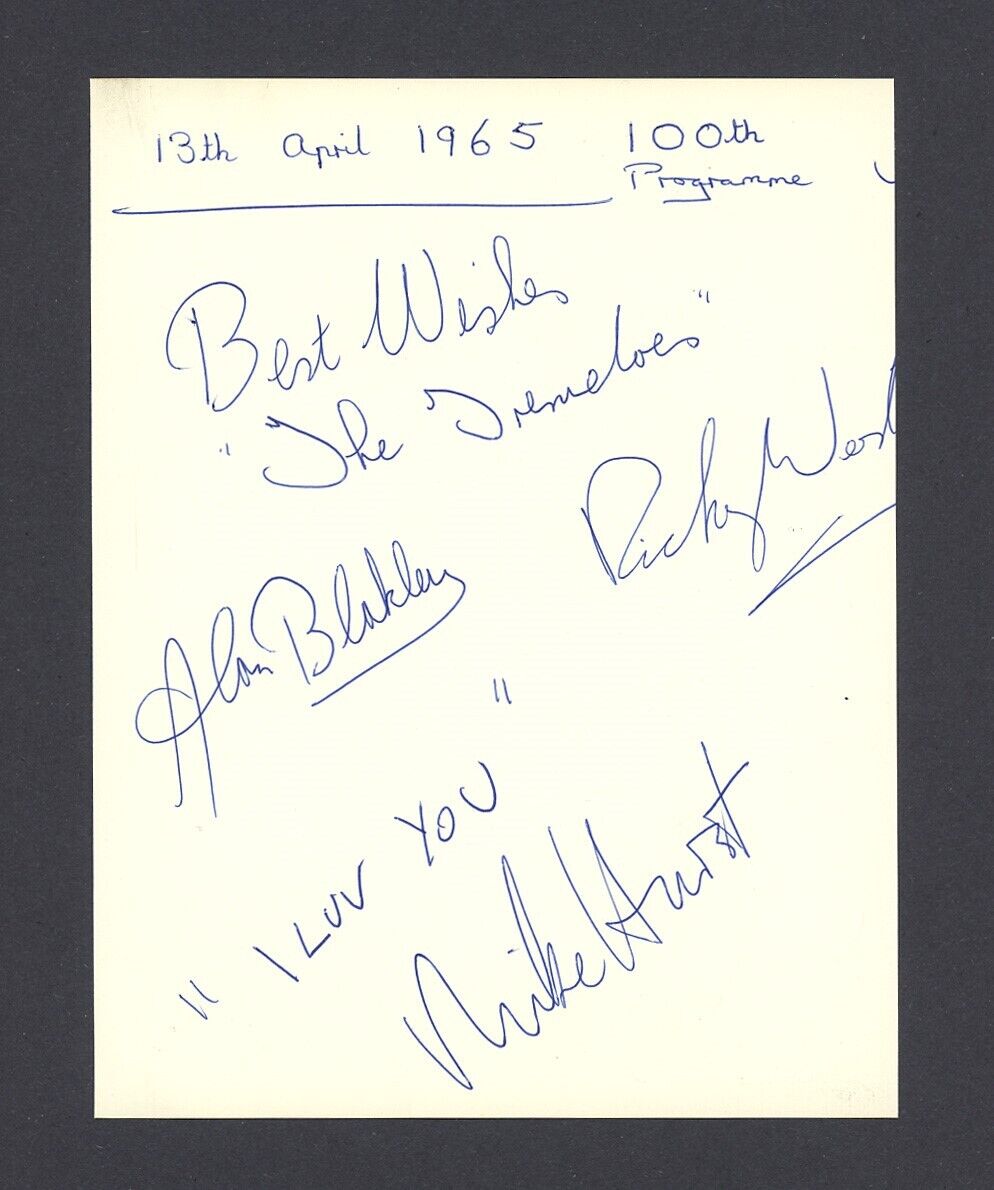 13th April 1965 100th
Programme
Best Wishes
"The Tremeloes"
Ricky West
Alan Blakley
"I LUV YOU"
Mike Hurst